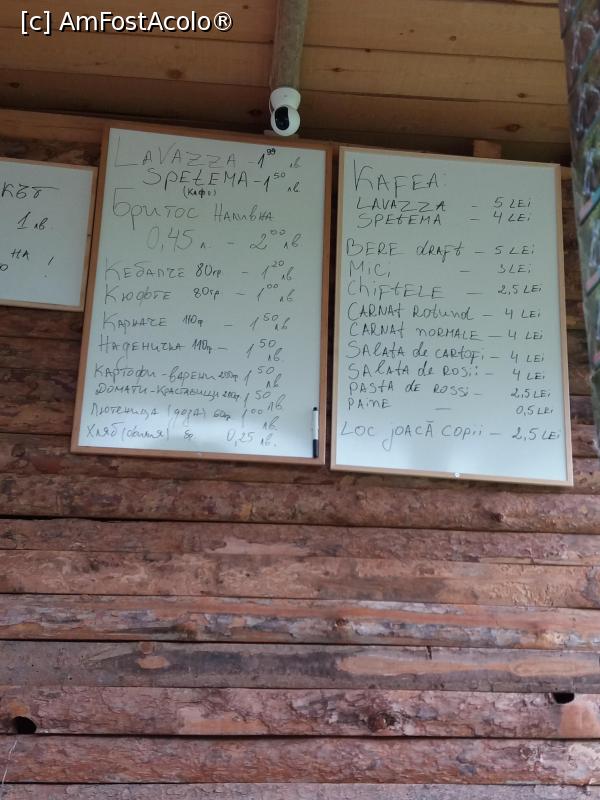 [c] AmFostAcolo®
КЪТ
1 лв.
НА
!
LAVAZZA - 1⁹⁹ лв.
SPETEMA - 1⁵⁰ лв.
(КАФЕ)
Бритос Наливна
0,45 л. - 2⁰⁰ лв.
Кебапче 80гр. - 1²⁰ лв.
Кюфте 80гр. - 1⁰⁰ лв.
Карначе 110гр - 1⁵⁰ лв.
Наденичка 110гр - 1⁵⁰ лв.
Картофи-варени 200гр 1⁵⁰ лв.
Домати-Краставици 200гр 1⁵⁰ лв.
Лютеница (доза) 60гр 1⁰⁰ лв.
Хляб (филия) бр. 0,25 лв.
KAFEA:
LAVAZZA - 5 LEI
SPETEMA - 4 LEI
BERE draft - 5 LEI
MICI - 3 LEI
CHIFTELE - 2,5 LEI
CARNAT Rotund - 4 LEI
CARNAT NORMALE - 4 LEI
SALATA de CARTOFI - 4 LEI
SALATA de ROSII - 4 LEI
PASTA de ROSSI - 2,5 LEI
PAINE - 0,5 LEI
LOC JOACĂ COPII - 2,5 LEI